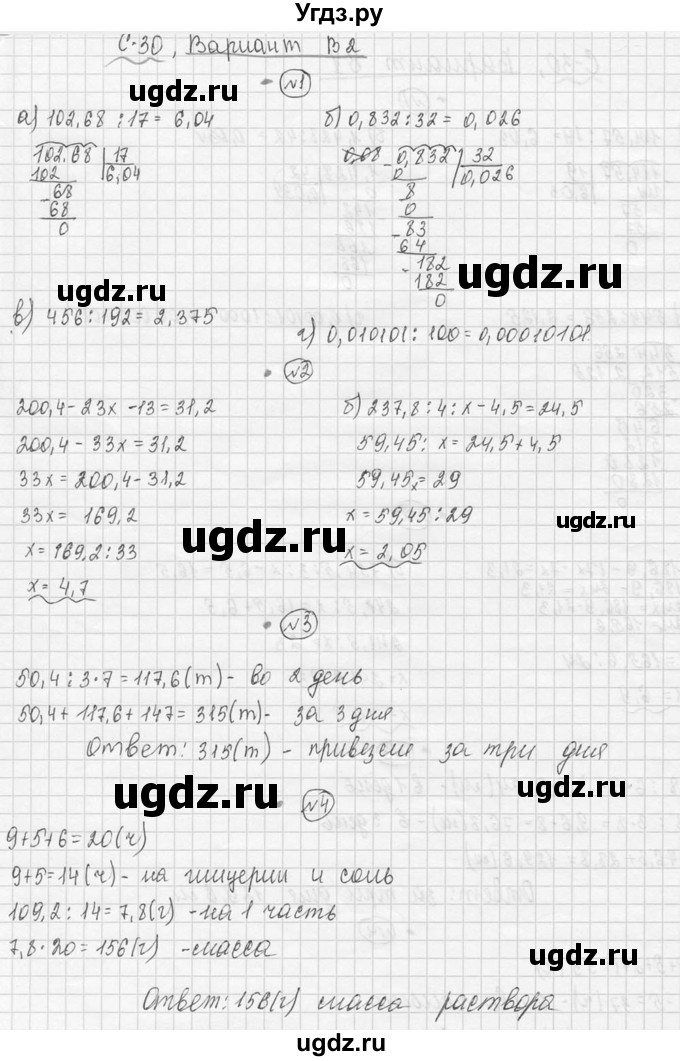 Угдз.ру
С-30, Вариант В2
№1
а) 102,68 : 17 = 6,04
б) 0,832 : 32 = 0,026
102.68 17
102 6,04
- 68
68
0
- 0,832 32
0 0,026
8
0
- 83
64
- 192
192
0
ugdz.ru ugdz.ru
в) 456 : 192 = 2,375
г) 0,010101 : 100 = 0,00010101
№2
200,4 - 23х - 13 = 31,2
200,4 - 33х = 31,2
33х = 200,4 - 31,2
33х = 169,2
х = 169,2 : 33
х = 4,7
б) 237,8 : 4 : х - 4,5 = 24,5
59,45 : х = 24,5 + 4,5
59,45х = 29
х = 59,45 : 29
х = 2,05
ugdz.ru ugdz.ru
№3
50,4 : 3 · 7 = 117,6 (т) - во 2 день
50,4 + 117,6 + 147 = 315 (т) - за 3 дня
Ответ: 315 (т) - привезли за три дня
ugdz.ru ugdz.ru
№4
9+5+6 = 20 (ч)
9+5 = 14 (ч) - на глицерин и соль
109,2 : 14 = 7,8 (г) - на 1 часть
7,8 · 20 = 156 (г) - масса
ugdz.ru ugdz.ru
Ответ: 156 (г) масса раствора
ugdz.ru